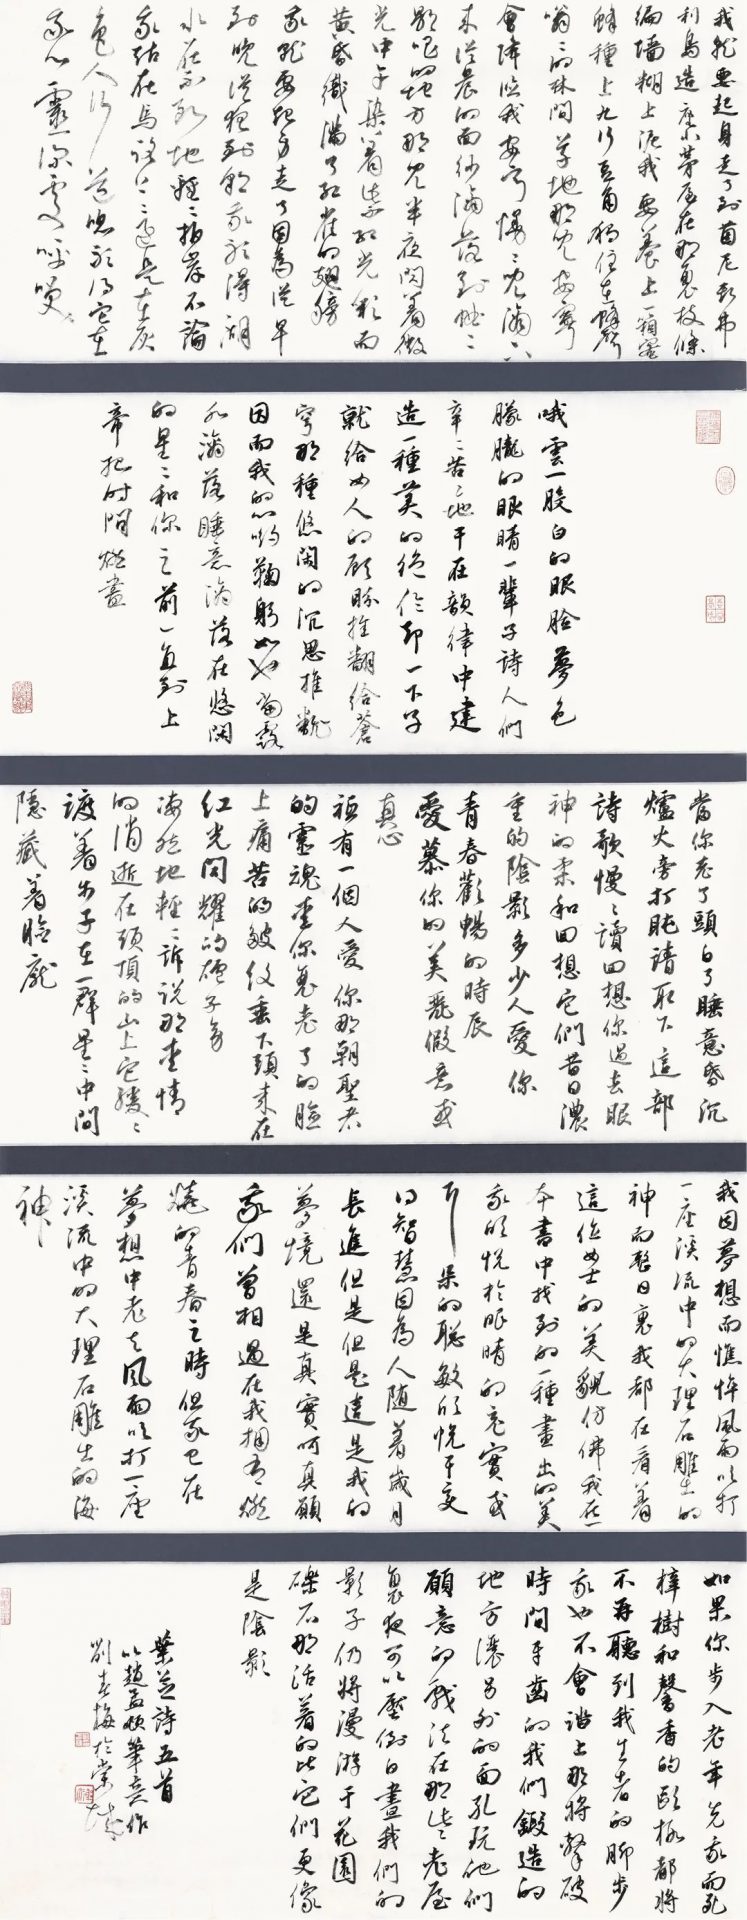 我就要起身走了到茵尼斯弗
利島造座茅屋在那裏枝條
編墻糊上泥我要養上一箱蜜
蜂種上九行豆角獨住在蜂聲
嗡嗡的林間草地那兒安寧
會降臨我安寧慢慢兒滴下
來從晨的面紗滴落到蛐蛐
歌唱的地方那兒半夜閃著微
光中午染著紫紅光彩而
黄昏織滿了紅雀的翅膀
我就要起身走了因為從早
到晚從夜到朝我聽得湖
水在不斷地輕輕拍岸不論
我站在馬路上還是在灰
色人行道總聽得它在
我心靈深處呼唤
哦雲一般白的眼臉夢色
朦朧的眼睛一輩子詩人們
辛辛苦苦地干在韻律中建
造一種美的絶伦却一下子
就給女人的顾盼推翻給蒼
穹那種悠閑的沉思推翻
因而我的心喲鞠躬如也當露
水滴落睡意滴落在悠閑
的星星和你之前一直到上
帝把时間燃盡
當你老了頭白了睡意昏沉
爐火旁打盹請取下這部
詩歌慢慢讀回想你過去眼
神的柔和回想它們昔日濃
重的陰影多少人愛你
青春歡暢的時辰
愛慕你的美麗假意或
真心
祗有一個人爱你那朝聖者
的靈魂愛你衰老了的臉
上痛苦的皺纹垂下頭来在
红光閃耀的爐子旁
凄然地輕輕訴説那愛情
的消逝在頭頂的山上它緩緩
踱着步子在一群星星中間
隱藏着臉龐
我因夢想而憔悴風雨吹打
一座溪流中的大理石雕出的
神而整日裏我都在看着
這位女士的美貌仿佛我在一
本書中找到的一種畫出的美
我欣悦於眼睛的充實或
耳朵的聪敏欣悦于变
得智慧因為人随着歲月
長進但是但是這是我的
夢境還是真實呵真願
我們曾相遇在我拥有燃
燒的青春之時但我已在
夢想中老去風雨吹打一座
溪流中的大理石雕出的海
神
如果你步入老年先我而死
梓樹和馨香的歐椴都將
不再聽到我生者的脚步
我也不會踏上那將擊破
時間牙齒的我們鍛造的
地方讓另外的面孔玩他們
願意的戲法在那些老屋
裏夜可以壓倒白晝我們的
影子仍將漫游于花園
礫石那活着的比它們更像
是陰影
葉芝詩五首
以趙孟頫筆意作